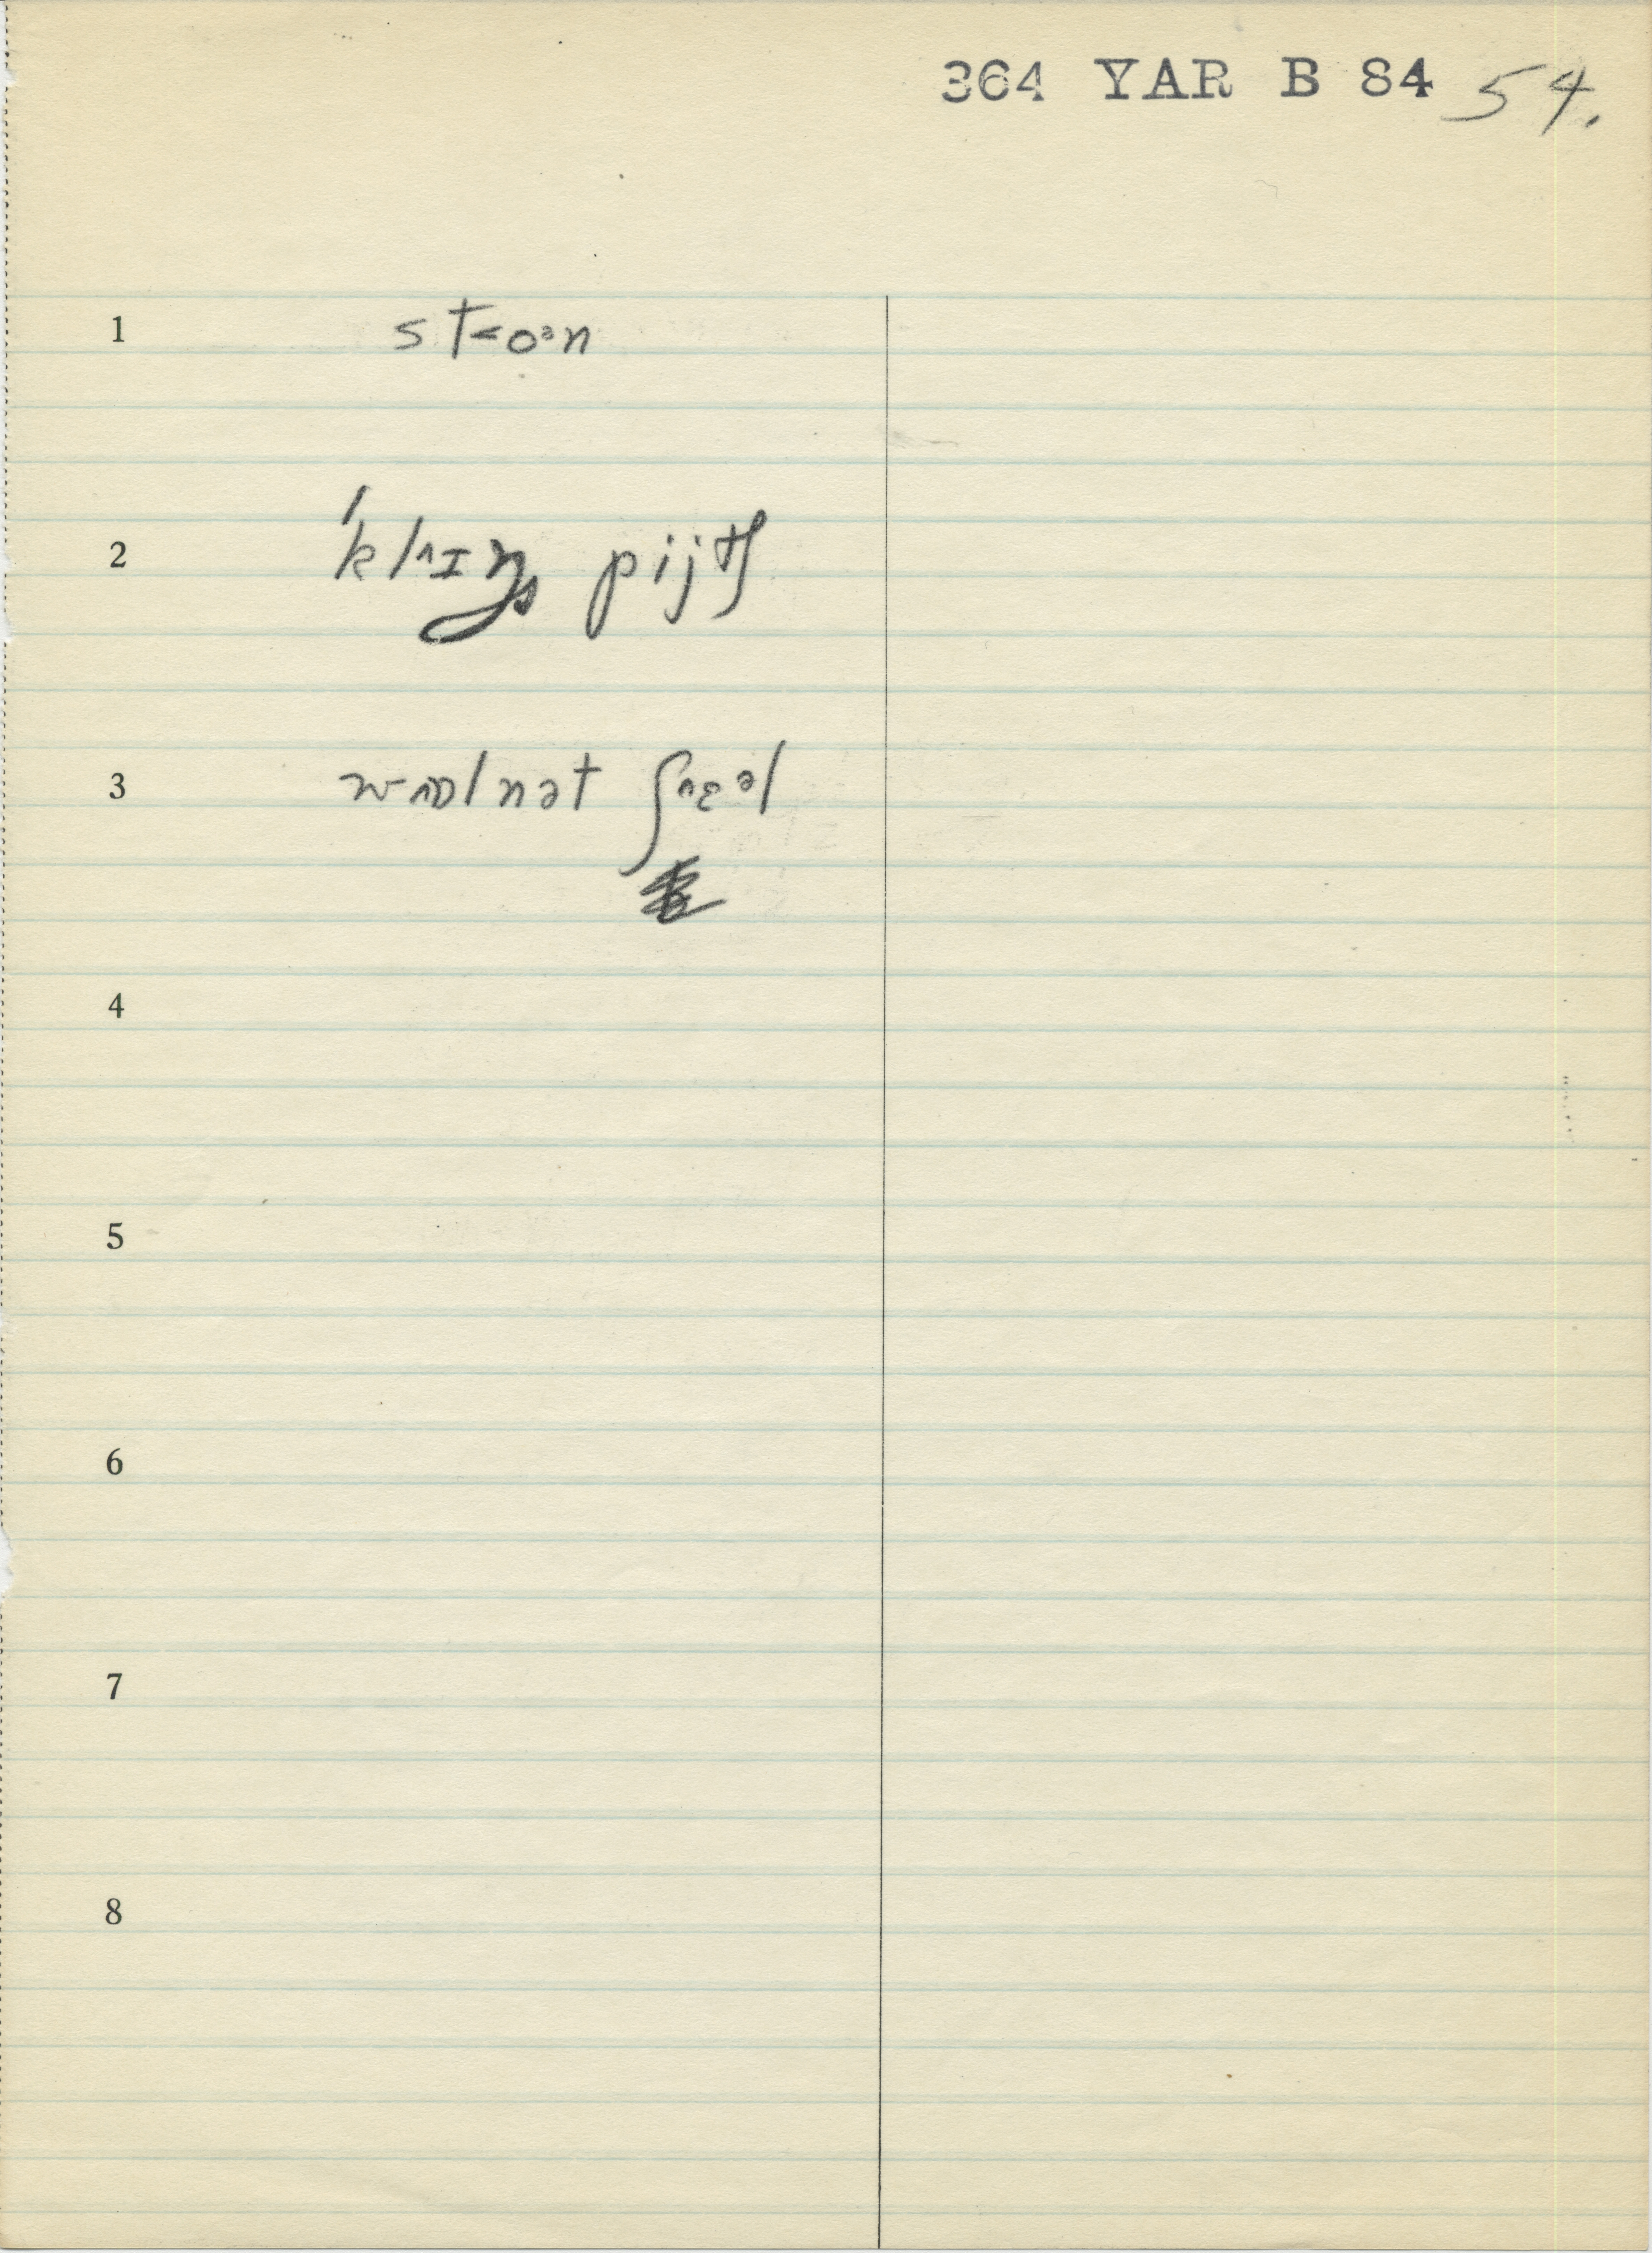 364 YAR B 84 54.
1 st˂oᵊn
2 ˈkl^ɪŋ pijtʃ
3 w^ɒlnət ʃ^ɛəl
4
5
6
7
8